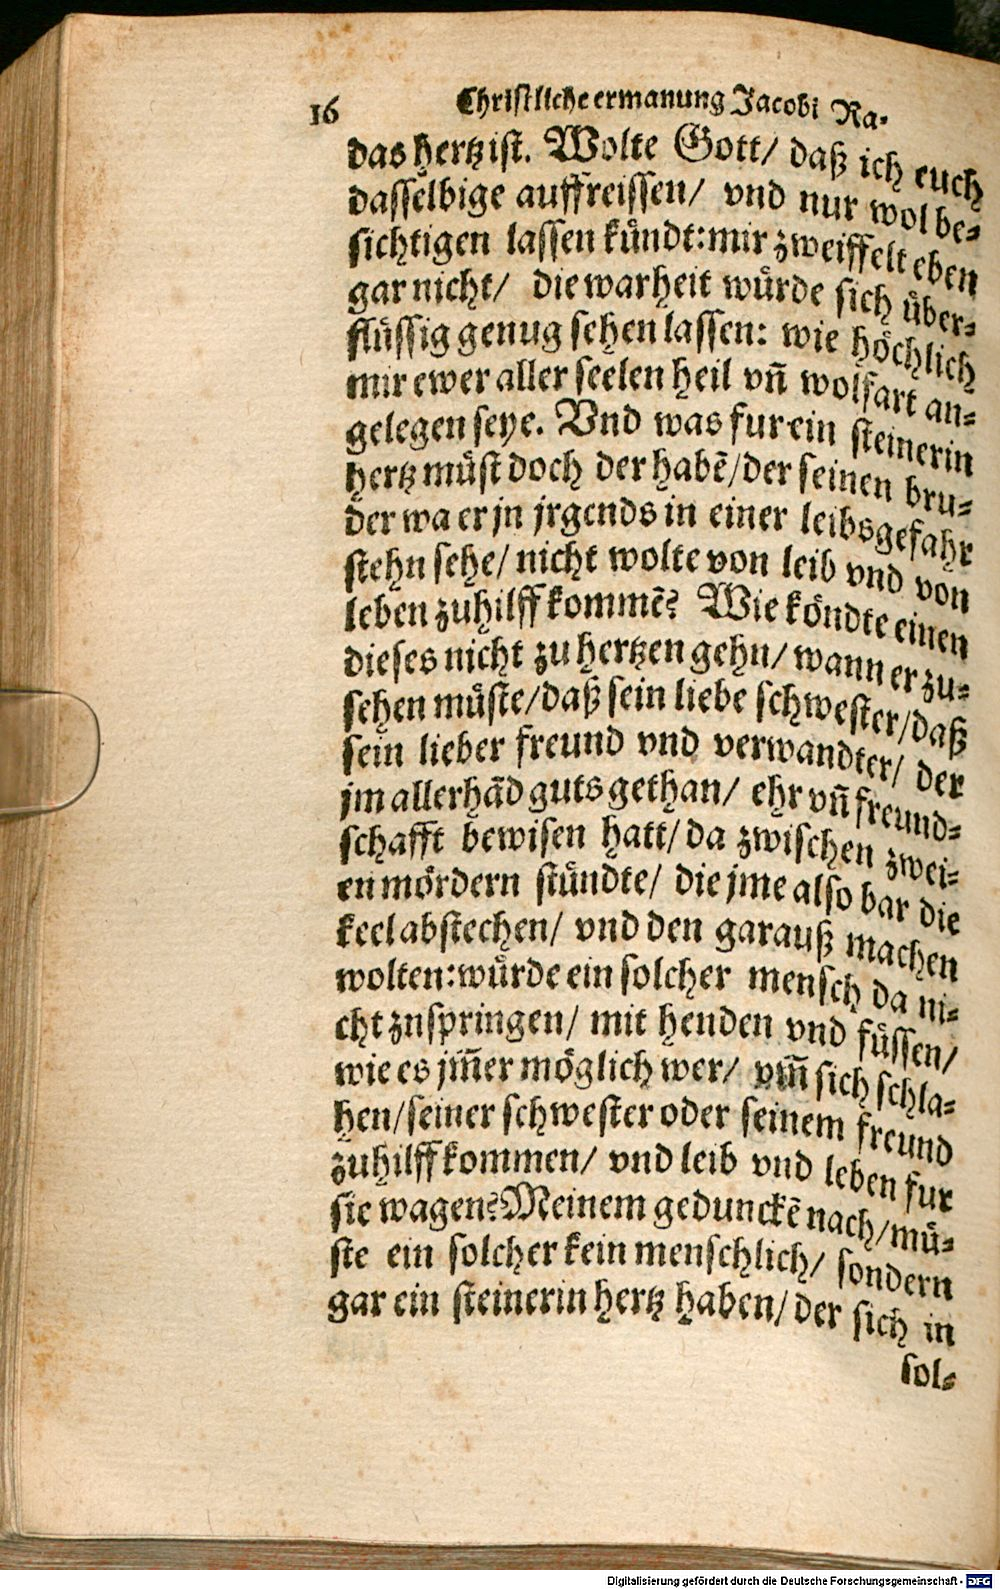 16 Christliche ermanung Jacobi Ra-
das hertz ist. Wolte Gott/ daß ich euch
dasselbige auffreissen/ vnd nur wol be-
sichtigen lassen kündt: mir zweiffelt eben
gar nicht/ die warheit würde sich über-
flüssig genug sehen lassen: wie höchlich
mir ewer aller seelen heil vñ wolfart an-
gelegen seye. Vnd was fur ein steinerin
hertz müst doch der habẽ/ der seinen bru-
der wa er jn jrgends in einer leibsgefahr
stehn sehe/ nicht wolte von leib vnd von
leben zuhilff kommẽ? Wie köndte einen
dieses nicht zu hertzen gehn/ wann er zu-
sehen müste/ daß sein liebe schwester/ daß
sein lieber freund vnd verwandter/ der
jm allerhãd guts gethan/ ehr vñ freund-
schafft bewisen hatt/ da zwischen zwei-
en mördern stündte/ die jme also bar die
keel abstechen/ vnd den garauß machen
wolten: würde ein solcher mensch da ni-
cht znspringen/ mit henden vnd füssen/
wie es jm̃er möglich wer/ vm̃ sich schla-
hen/ seiner schwester oder seinem freund
zuhilff kommen/ vnd leib vnd leben fur
sie wagen? Meinem geduncke͂ nach/ mü-
ste ein solcher kein menschlich/ sondern
gar ein steinerin hertz haben/ der sich in
sol-
Digitalisierung gefördert durch die Deutsche Forschungsgemeinschaft - DFG